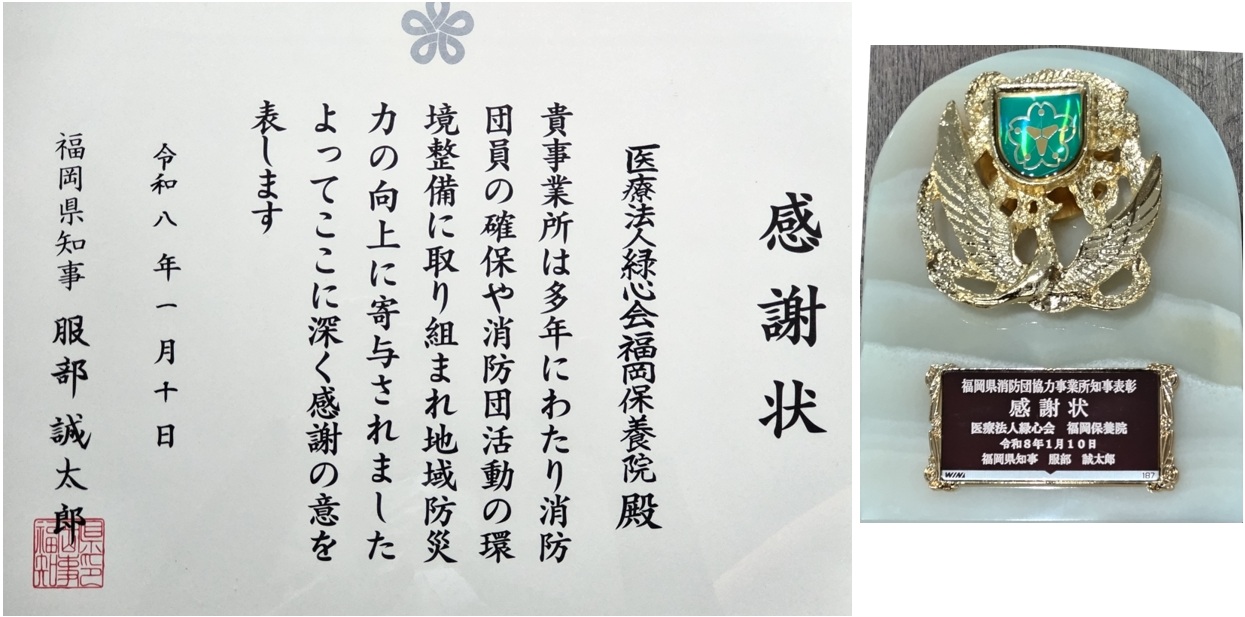 感謝状
医療法人緑心会福岡保養院 殿
貴事業所は多年にわたり消防
団員の確保や消防団活動の環
境整備に取り組まれ地域防災
力の向上に寄与されました
よってここに深く感謝の意を
表します
令和八年一月十日
福岡県知事 服部 誠太郎
福岡県消防団協力事業所知事表彰
感謝状
医療法人緑心会 福岡保養院
令和8年1月10日
福岡県知事 服部 誠太郎
WIN1
187